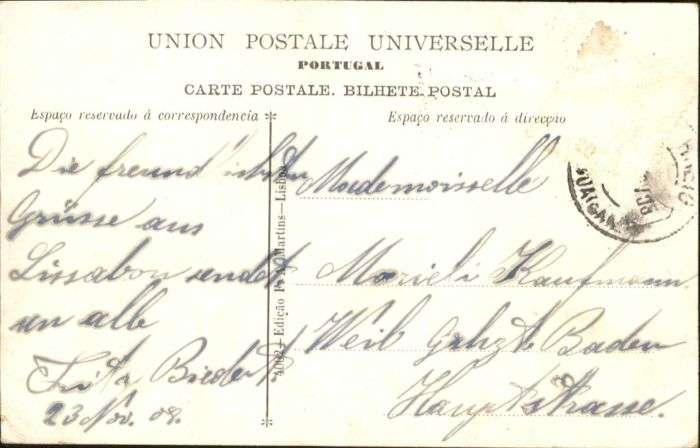 UNION POSTALE UNIVERSELLE
PORTUGAL
CARTE POSTALE. BILHETE POSTAL
Espaço reservado á correspondencia
Espaço reservado á direcção
Die freundlichsten
Grüsse aus
Lissabon sendet
an alle
Fritz
23 Nov. 08.
4002 - Edição Martins - Lisboa
Mademoiselle
Marieli Kaufmann
Weil Baden
Hauptstrasse.